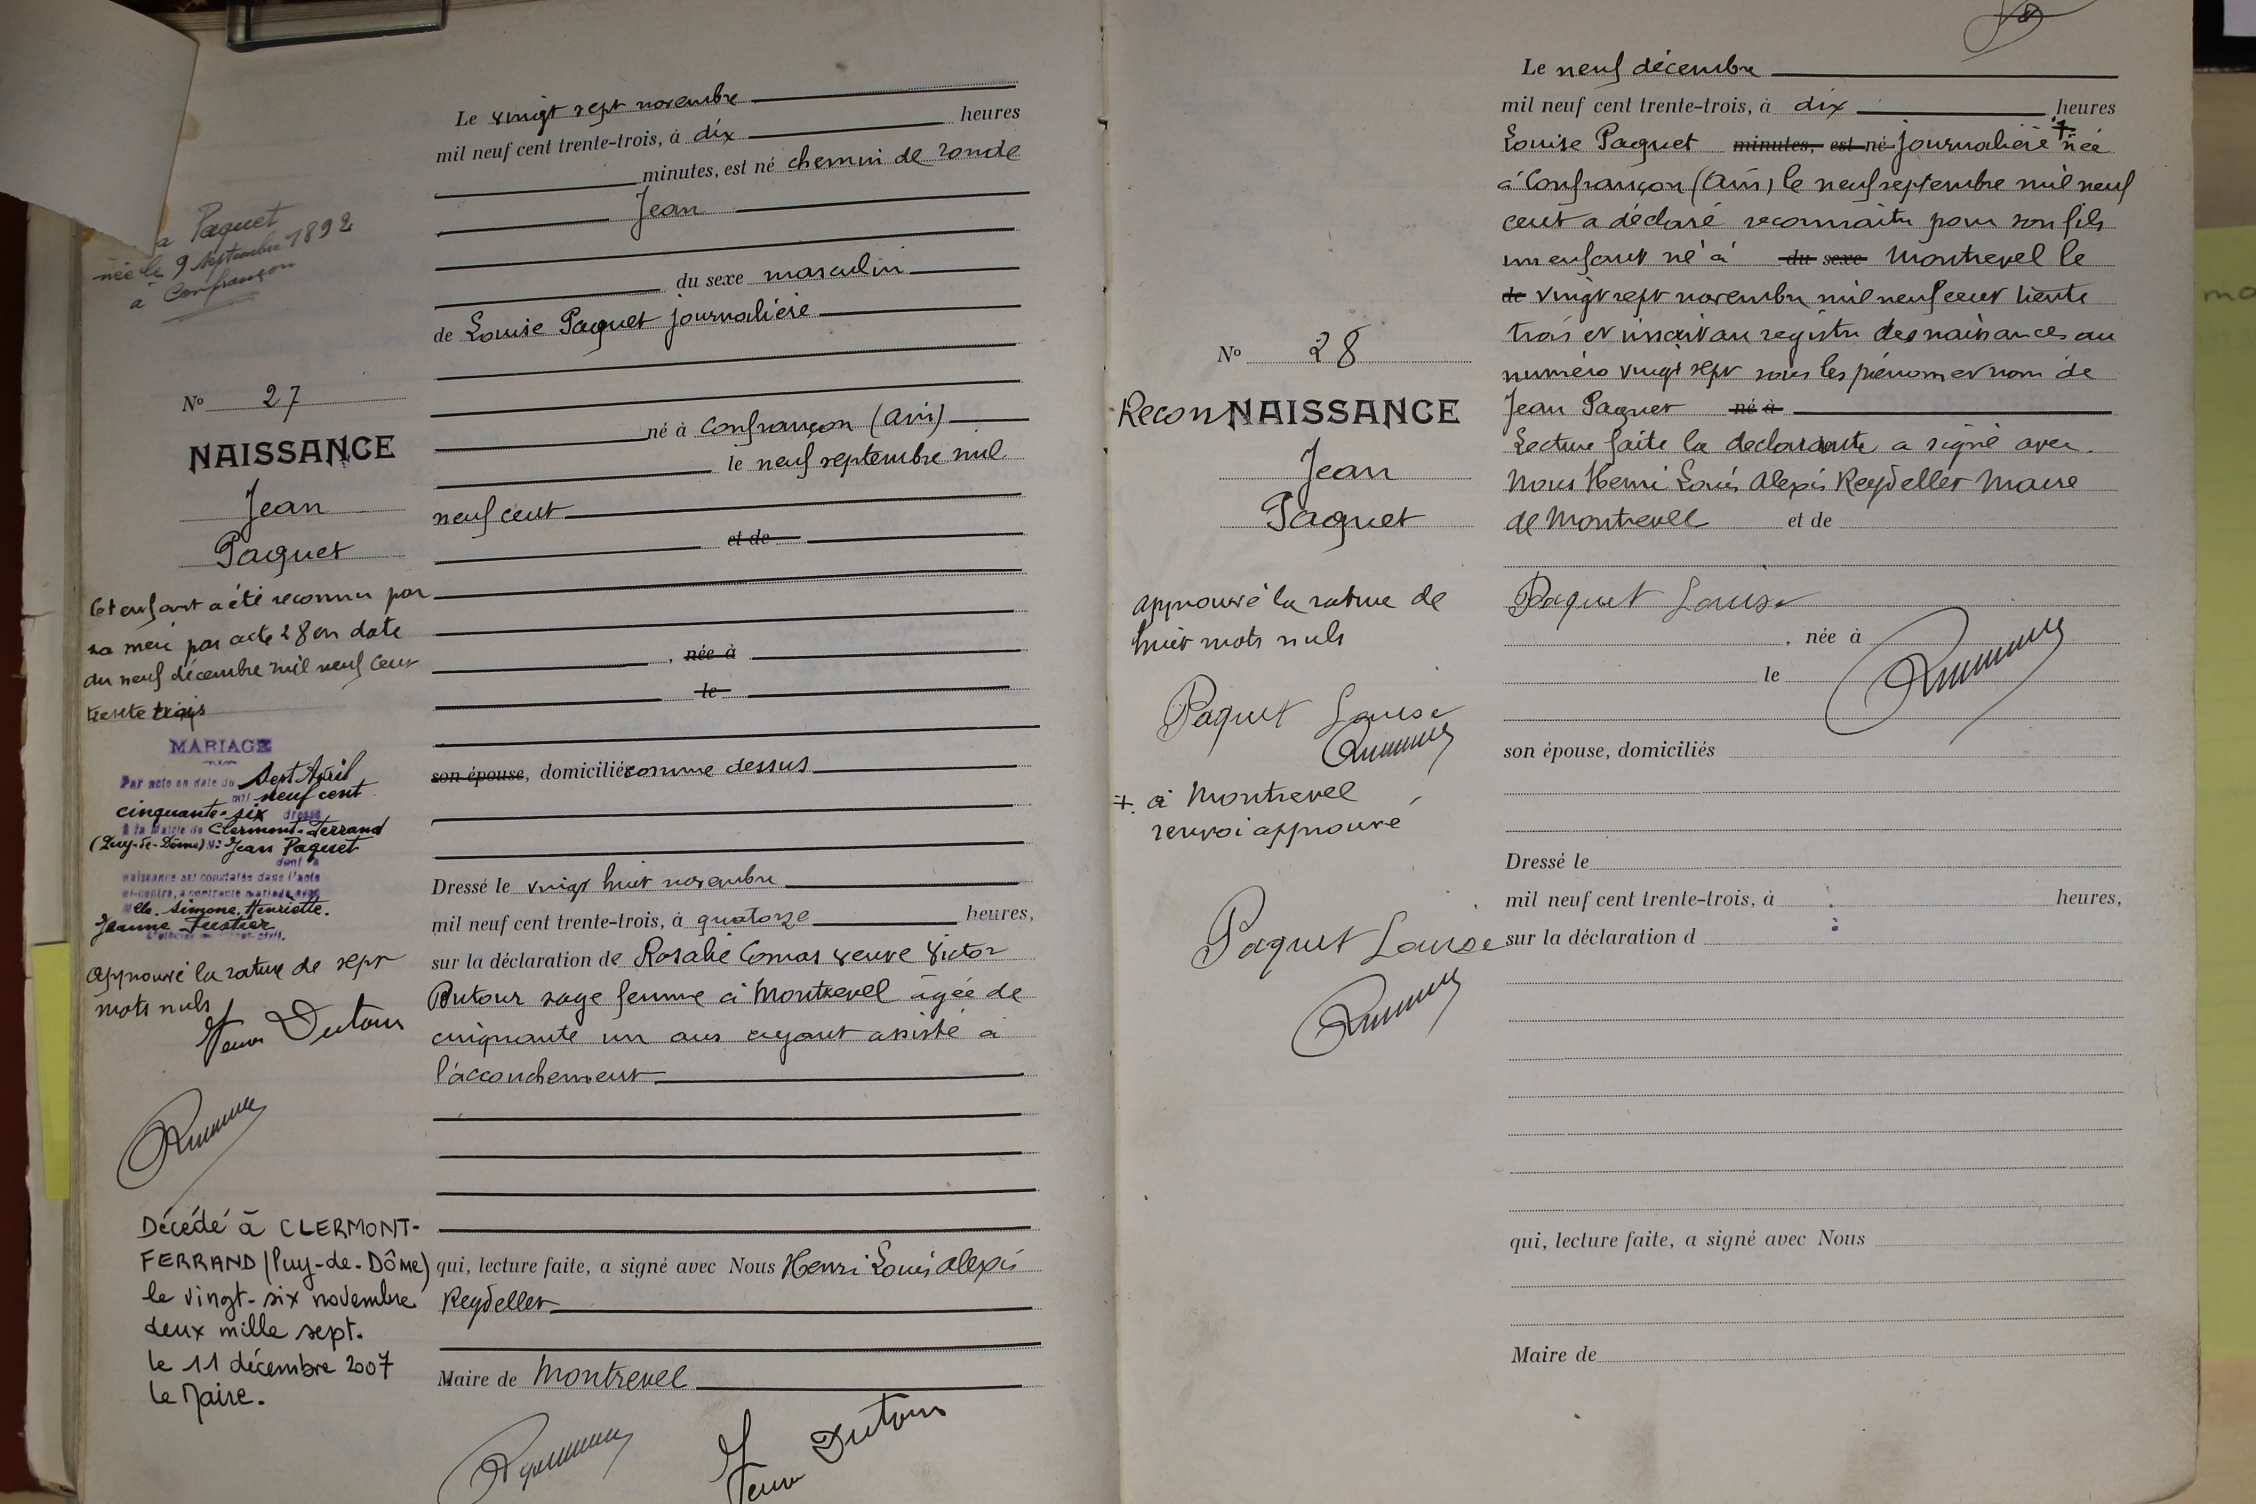 a Paquet
née le 9 septembre 1892
à Confrançon
N° 27
NAISSANCE
Jean
Paquet
Cet enfant a été reconnu par
sa mère par acte 28 en date
du neuf décembre mil neuf cent
trente trois
MARIAGE
Par acte en date du Sept Avril
mil neuf cent
cinquante-six dressé
à la Mairie de Clermont-Ferrand
(Puy-de-Dôme) M: Jean Paquet
dont la
naissance est constatée dans l'acte
ci-contre, a contracté mariage avec
Melle. Simone, Henriette.
Jeanne
approuvé la rature de sept
mots nuls
Veuve Dutour
Décédé à CLERMONT-
FERRAND (Puy-de-Dôme)
le vingt-six novembre
deux mille sept.
le 11 décembre 2007
Le Maire.
Le vingt sept novembre
mil neuf cent trente-trois, à dix heures
minutes, est né chemin de ronde
Jean
du sexe masculin
de Louise Paquet journalière
né à Confrançon (Ain)
le neuf septembre mil
neuf cent
et de
, née à
le
son épouse, domiciliés comme dessus
Dressé le vingt huit novembre
mil neuf cent trente-trois, à quatorze heures,
sur la déclaration de Rosalie Comas veuve Victor
Dutour sage femme à Montrevel âgée de
cinquante un ans ayant assisté à
l'accouchement
qui, lecture faite, a signé avec Nous Henri Louis Alexis
Reydellet
Maire de Montrevel
Veuve Dutour
Le neuf décembre
mil neuf cent trente-trois, à dix heures
Louise Paquet minutes, est né journalière + née
à Confrançon (Ain) le neuf septembre mil neuf
cent a déclaré reconnaître pour son fils
un enfant né à du sexe Montrevel le
de vingt sept novembre mil neuf cent trente
trois et inscrit au registre des naissances au
numéro vingt sept sous les prénom et nom de
Jean Paquet né à
Lecture faite la déclarante a signé avec
Nous Henri Louis Alexis Reydellet Maire
de Montrevel et de
Paquet Louise
, née à
le
son épouse, domiciliés
Dressé le
mil neuf cent trente-trois, à heures,
sur la déclaration d
qui, lecture faite, a signé avec Nous
Maire de
N° 28
ReconNAISSANCE
Jean
Paquet
approuvé la rature de
huit mots nuls
Paquet Louise
+ à Montrevel
renvoi approuvé
Paquet Louise